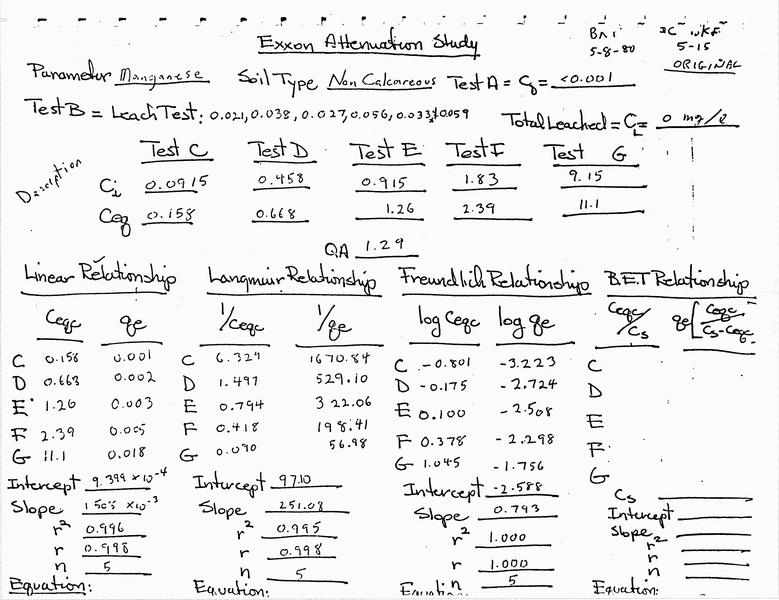 Exxon Attenuation Study
5-8-80
5-15
ORIGINAL
Parameter Manganese Soil Type Non Calcareous Test A = C₀ = <0.001
Test B = Leach Test: 0.021, 0.038, 0.027, 0.056, 0.033, 0.059
Total Leached = C_L = 0 mg/l
Description
Test C Test D Test E Test F Test G
Ci 0.0915 0.458 0.915 1.83 9.15
Ceq 0.158 0.668 1.26 2.39 11.1
QA 1.29
Linear Relationship Langmuir Relationship Freundlich Relationship B.E.T Relationship
Ceqc qe 1/Ceqc 1/qe log Ceqc log qe Ceqc/Cs qe[Ceqc/Cs-Ceqc
C 0.158 0.001 C 6.329 1670.84 C -0.801 -3.223 C
D 0.668 0.002 D 1.497 529.10 D -0.175 -2.724 D
E 1.26 0.003 E 0.794 322.06 E 0.100 -2.508 E
F 2.39 0.005 F 0.418 198.41 F 0.378 -2.298 F
G 11.1 0.018 G 0.090 56.98 G 1.045 -1.756 G
Cs
Intercept 9.399 x10⁻⁴ Intercept 97.10 Intercept -2.588 Intercept
Slope 1.505 x10⁻³ Slope 251.08 Slope 0.793 Slope
r² 0.996 r² 0.995 r² 1.000 r²
r 0.998 r 0.998 r 1.000 r
n 5 n 5 n 5 n
Equation: Equation: Equation: Equation: